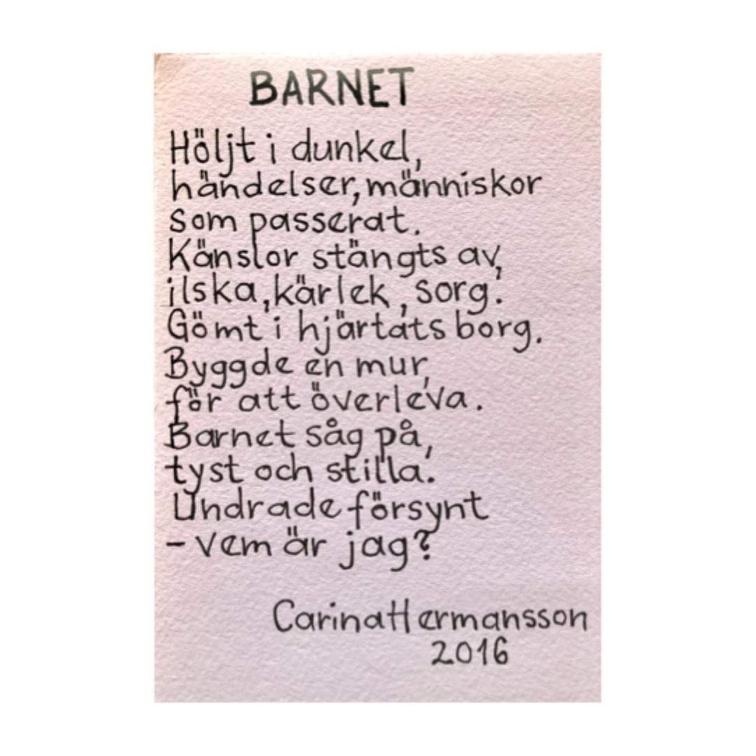 BARNET
Höljt i dunkel,
händelser, människor
som passerat.
Känslor stängts av,
ilska, kärlek, sorg.
Gömt i hjärtats borg.
Byggde en mur,
för att överleva.
Barnet såg på,
tyst och stilla.
Undrade försynt
- vem är jag?
Carina Hermansson
2016